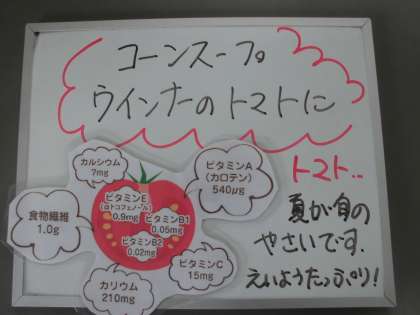 コーンスープ
ウインナーのトマトに
トマト..
夏が旬の
やさいです.
えいようたっぷり!
カルシウム
7mg
ビタミンA
(カロテン)
540μg
ビタミンE
(αトコフェノール)
0.9mg
ビタミンB1
0.05mg
ビタミンB2
0.02mg
食物繊維
1.0g
ビタミンC
15mg
カリウム
210mg